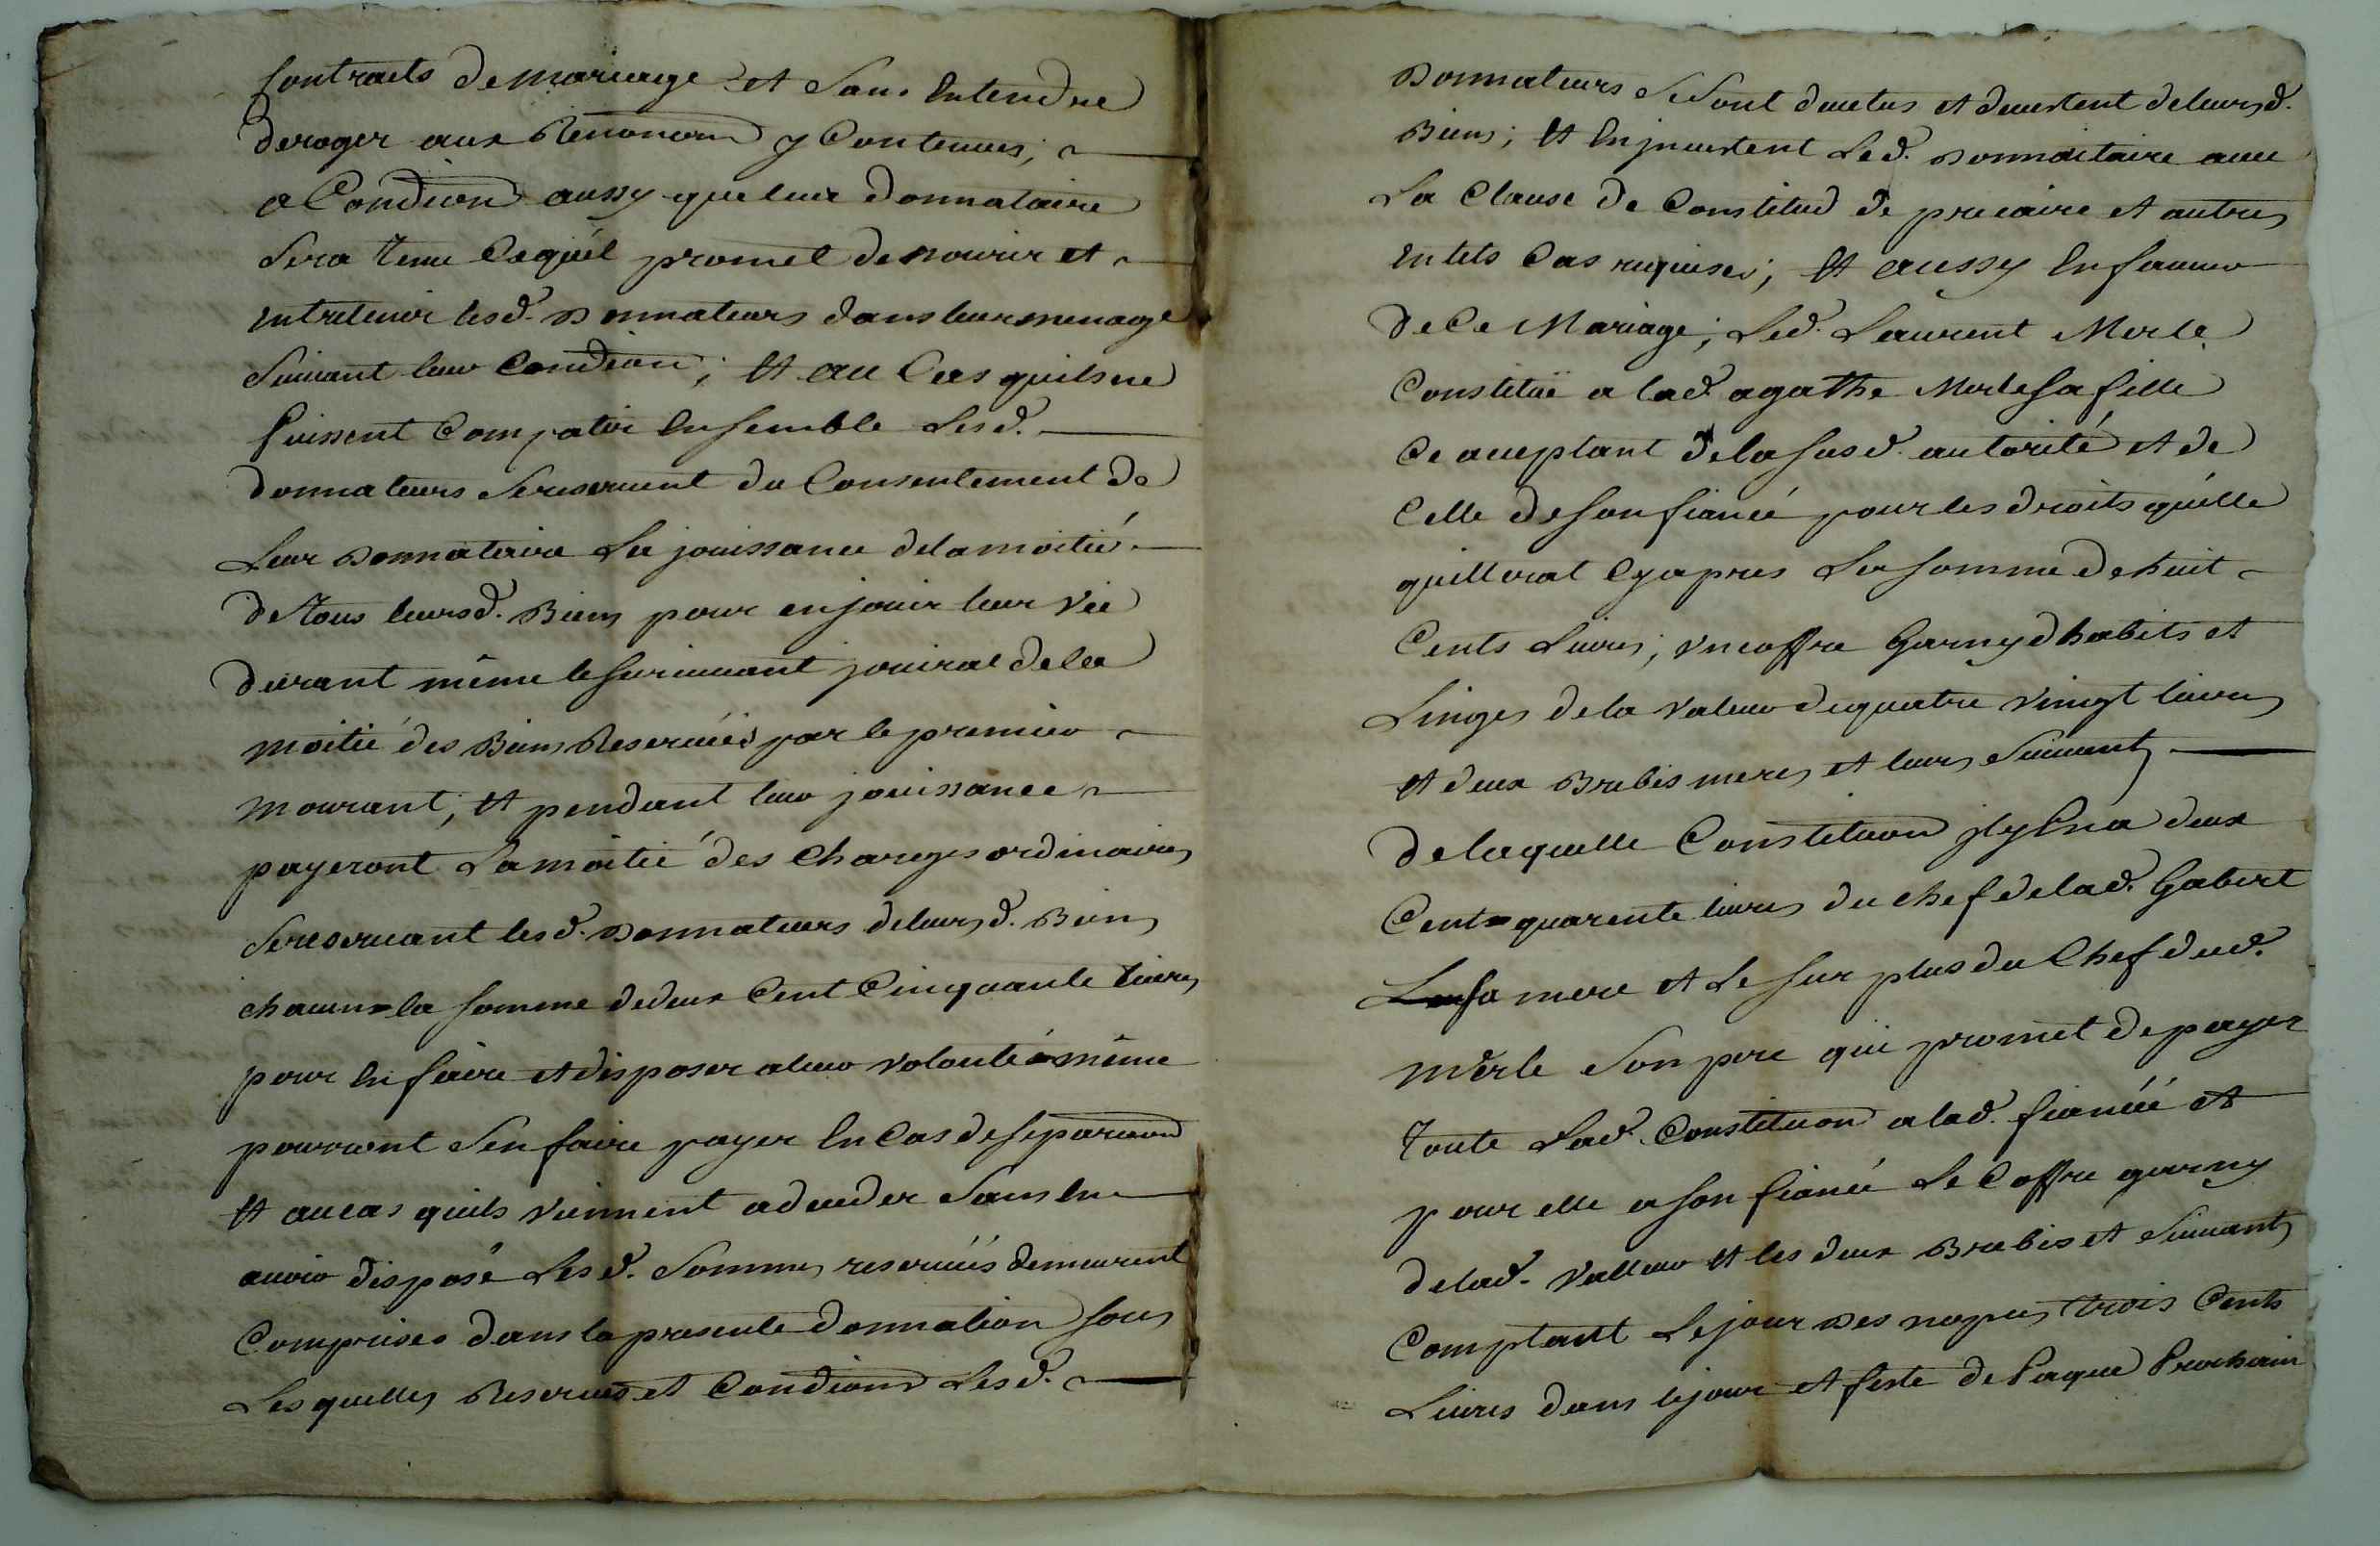 Contracts de mariage et sans Entendre
deroger aux Renonc̄on̄ y Contenues;
a Condi̅on aussy que leur donnataire
sera tenu Ce quél promet de nourir et
entretenir lesd. donnateurs dans leur menage
suivant leur Condi̅on; Et au Cas quils ne
Puissent Compatir Ensemble Lesd.
donnateurs Se reservent du Consentement de
Leur donnataire La jouissance de la moitié
de tous leursd. Biens pour en jouir leur vie
durant même le survivant jouirat de la
moitié des Biens Reservéés par le premier
mourant; Et pendant leur jouissance
payeront La moitié des Charges ordinaires
Se reservant lesd. donnateurs de leursd. Biens
chacun la somme de deux Cent Cinquante livres
pour En faire et disposer a leur volonté même
pourront S'en faire payer En Cas de separa̅on
Et au cas quils viennent a deceder Sans En
avoir disposé Lesd. Sommes reservéés demeurent
Comprises dans la presente donnation sous
Lesquelles Reserves et Condi̅ons Lesd.
Donnateurs Se Sont devetus et devestent de leursd.
Biens; Et En jnvestent Led. donnataire avec
La Clause de Constitud de precaire et autres
En tels Cas requises; Et aussy En faveur
de Ce Mariage; Led. Laurent Merle
Constitüe a lad. agathe Merle sa fille
Ce acceptant de la susd. autorité et de
Celle de son fiancé pour les droits qu'elle
quitterat Cy apres La somme de huit
Cents Livres; vn coffre Garny dhabits et
Linges de la valeur de quatre vingt livres
et deux Brebis meres et leurs Suivants
de laquelle Constitu̅on jl y En a deux
Cent quarente livres du chef de lad. Gabert
sa mere et Le sur plus du Chef dud.
merle Son pere qui promet de payer
Toute Lad. Constitu̅on a lad. fiancéé et
pour elle a son fiancé Le Coffre garny
de lad. valleur Et les deux Brebis et Suivants
Comptant Le jour des nopces trois Cents
Livres dans le jour et feste de Paque Prochain